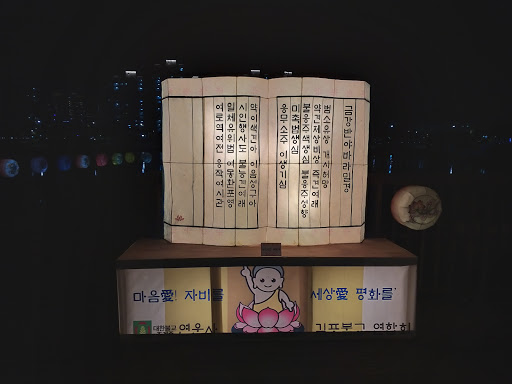 금강반야바라밀경
범소유상 개시허망
약견제상비상 즉견여래
불응주색생심 불응주성향
미촉법생심
응무소주 이생기심
약이색견아 이음성구아
시인행사도 불능견여래
일체유위법 여몽환포영
여로역여전 응작여시관
마음愛! 자비를 세상愛 평화를'
대한불교 연우사 김포불교 연합회